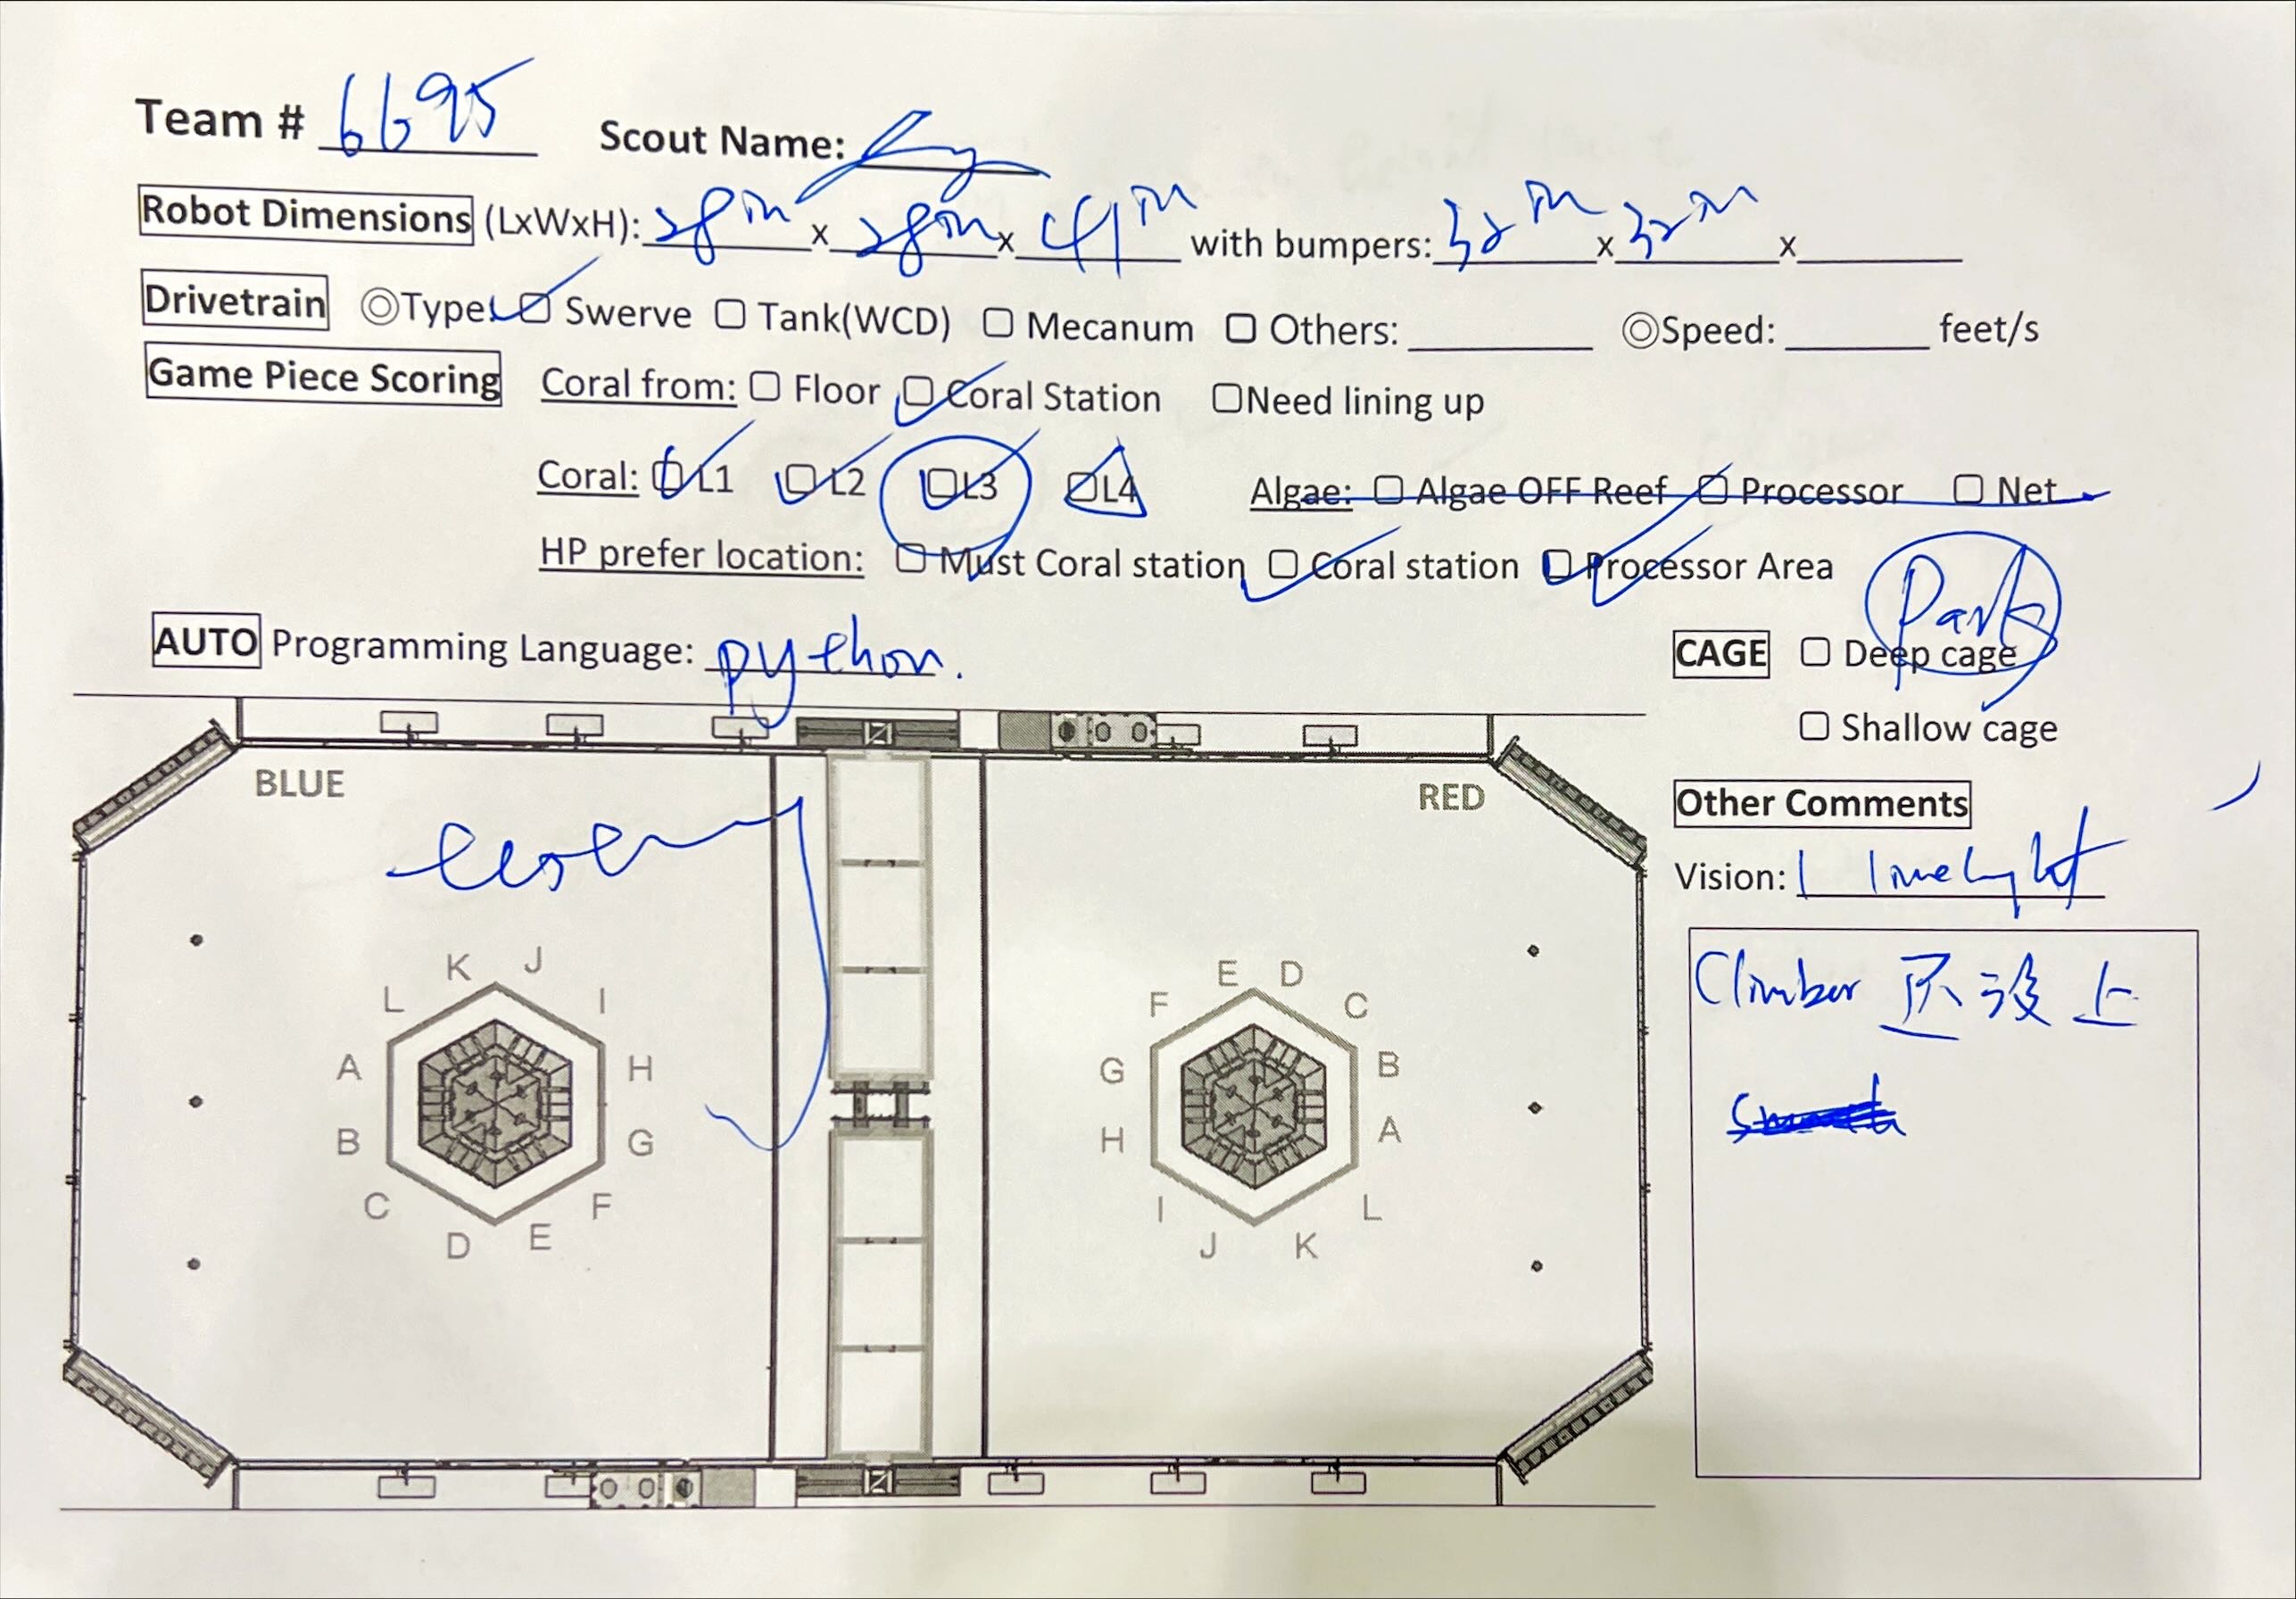 Team # 6695 Scout Name:
Robot Dimensions (LxWxH): 28in x 28in x 41in with bumpers: 32in x 32in x
Drivetrain ◎Type: ☑ Swerve ☐ Tank(WCD) ☐ Mecanum ☐ Others: ◎Speed: feet/s
Game Piece Scoring Coral from: ☐ Floor ☑ Coral Station ☐Need lining up
Coral: ☑L1 ☑L2 ☑L3 ☐L4 Algae: ☐ Algae OFF Reef ☐ Processor ☐ Net
HP prefer location: ☐ Must Coral station ☑ Coral station ☑ Processor Area
Park
AUTO Programming Language: python.
CAGE ☐ Deep cage
☐ Shallow cage
BLUE
RED
Other Comments
Vision: 1 limelight
Climber 还没上
K J
L I
A H
B G
C F
D E
E D
F C
G B
H A
I L
J K